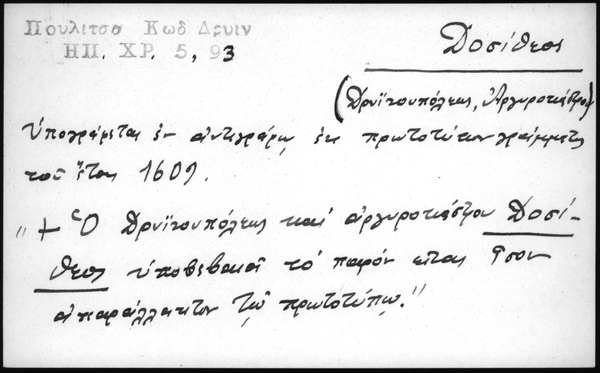 Πουλιτσα Κωδ Δρυιν
ΗΠ. ΧΡ. 5, 93
Δοσίθεος
(Δρυϊνουπόλεως, Ἀργυροκάστρου)
Ὑπογράφεται ἐν ἀντιγράφῳ ἐκ πρωτοτύπου γράμματος
τοῦ ἔτους 1609.
"+ Ὁ Δρυϊνουπόλεως καί ἀργυροκάστρου Δοσί-
θεος ὑποβεβαιοῖ τό παρόν εἶναι ἶσον
ἀπαράλλακτον τῷ πρωτοτύπῳ."